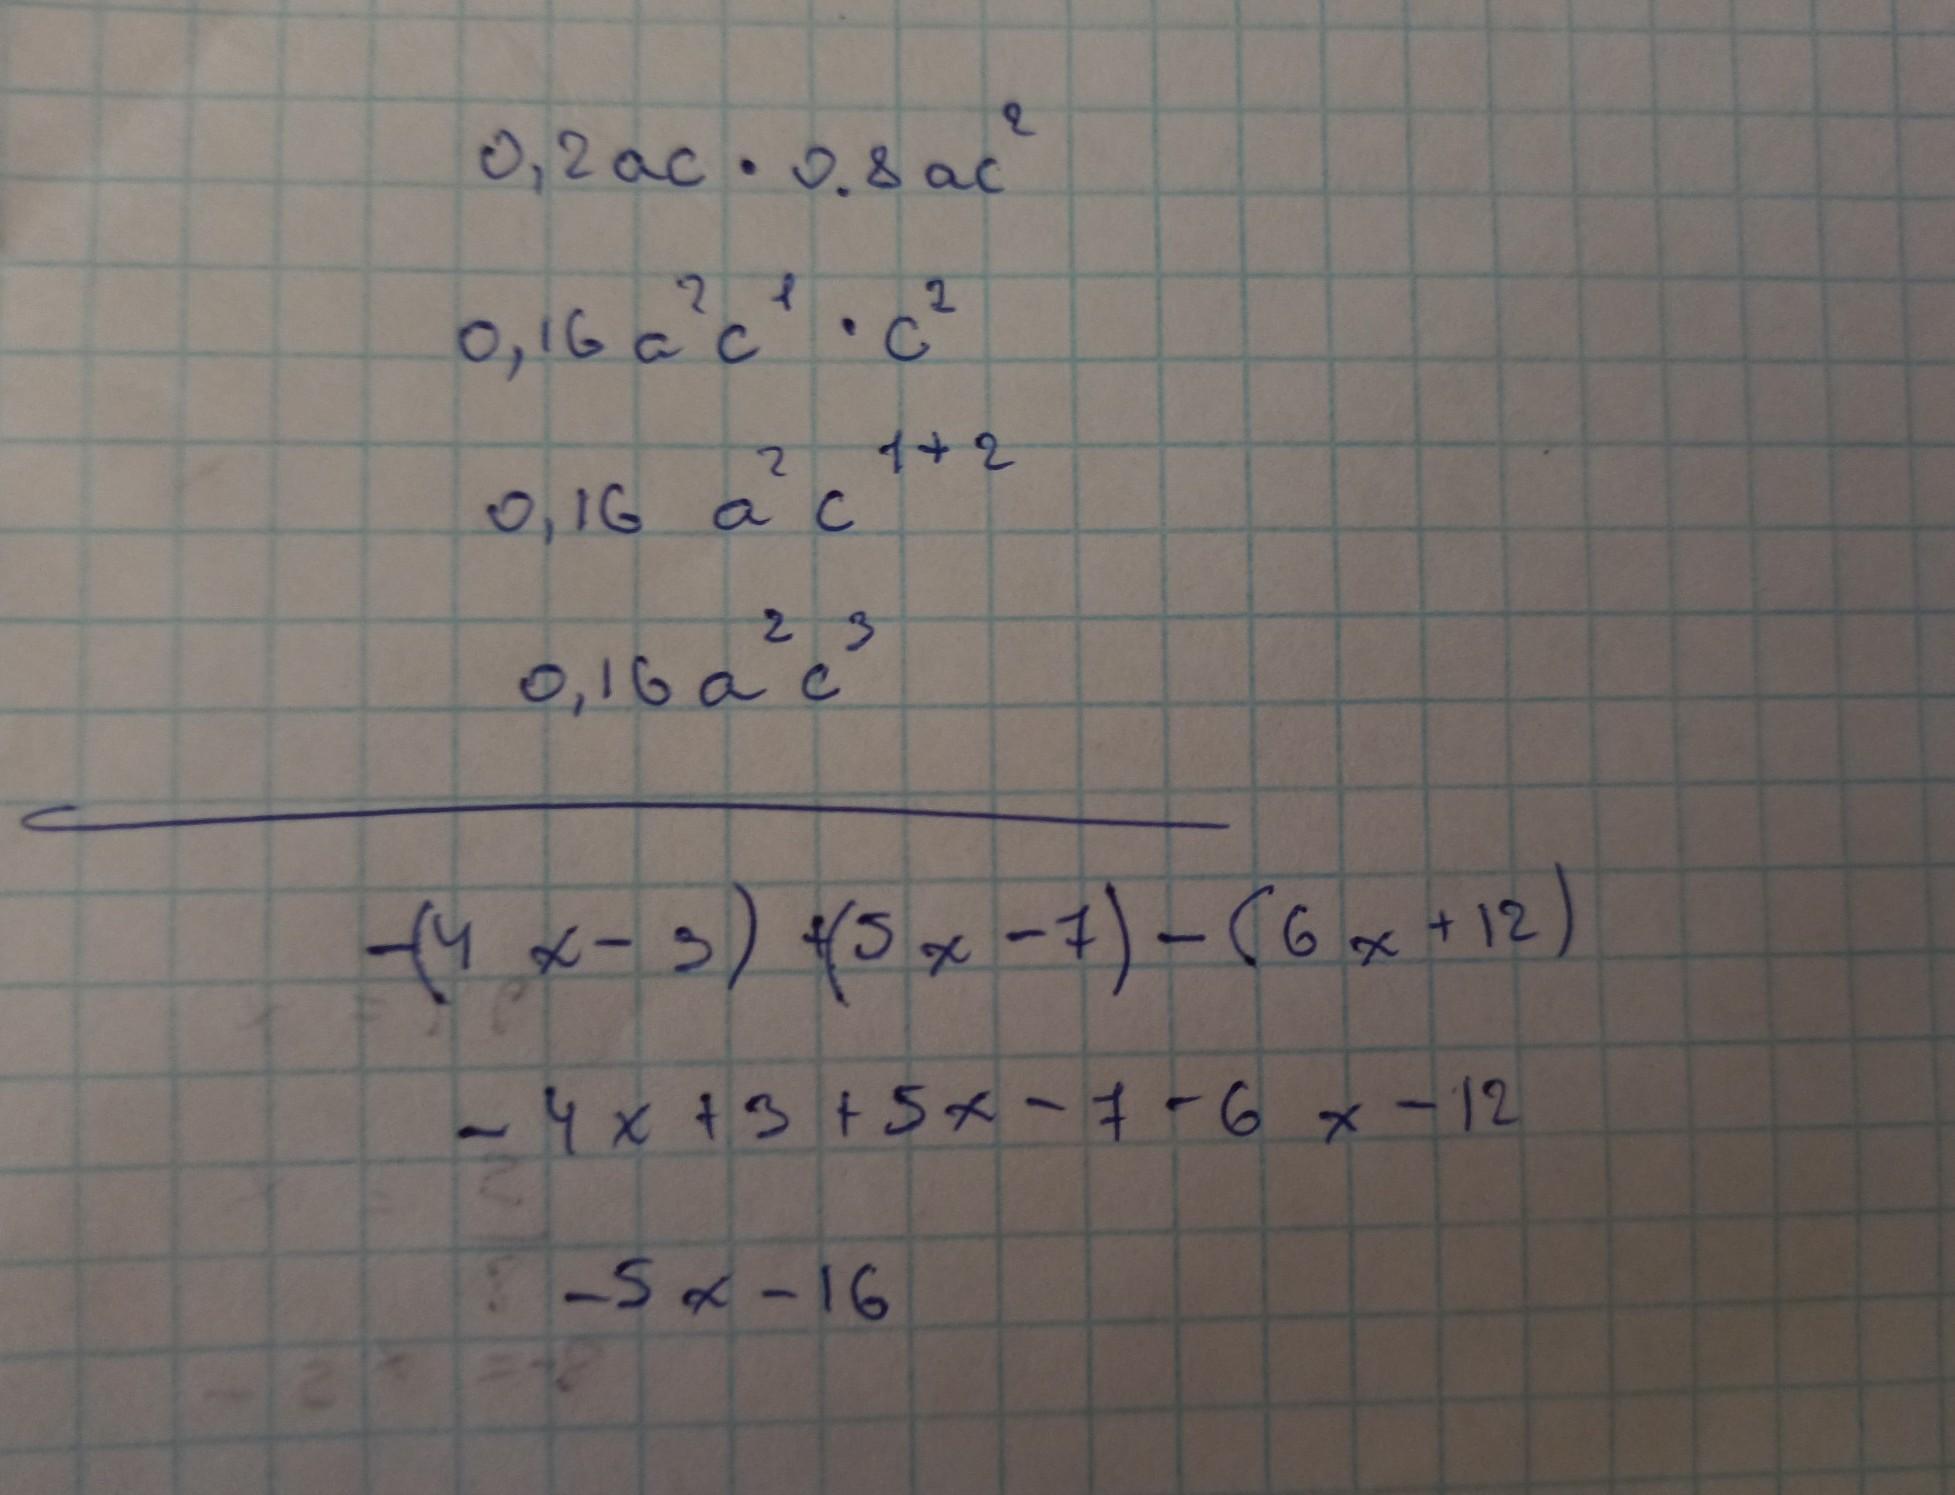 0,2ac · 0.8ac²
0,16a²c¹ · c²
0,16 a²c¹⁺²
0,16a²c³
-(4x-3)+(5x-7)-(6x+12)
-4x+3+5x-7-6x-12
-5x-16